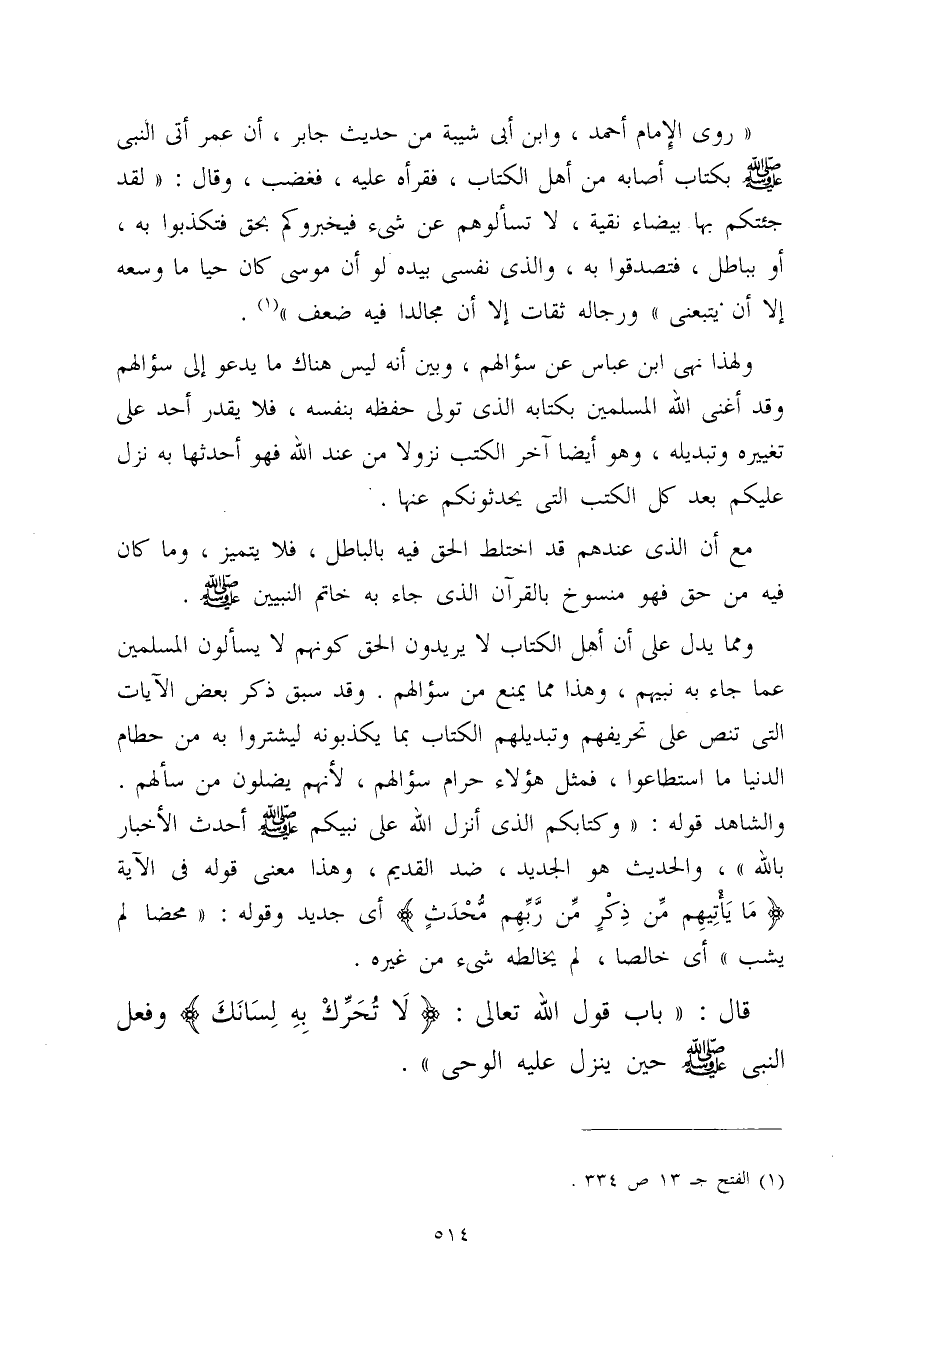 « روى الإمام أحمد ، وابن أبى شيبة من حديث جابر ، أن عمر أتى النبى
ﷺ بكتاب أصابه من أهل الكتاب ، فقرأه عليه ، فغضب ، وقال : « لقد
جئتكم بها بيضاء نقية ، لا تسألوهم عن شىء فيخبروكم بحق فتكذبوا به ،
أو بباطل ، فتصدقوا به ، والذى نفسى بيده لو أن موسى كان حيا ما وسعه
إلا أن يتبعنى » ورجاله ثقات إلا أن مجالدا فيه ضعف »(١) .
ولهذا نهى ابن عباس عن سؤالهم ، وبين أنه ليس هناك ما يدعو إلى سؤالهم
وقد أغنى الله المسلمين بكتابه الذى تولى حفظه بنفسه ، فلا يقدر أحد على
تغييره وتبديله ، وهو أيضا آخر الكتب نزولا من عند الله فهو أحدثها به نزل
عليكم بعد كل الكتب التى يحدثونكم عنها .
مع أن الذى عندهم قد اختلط الحق فيه بالباطل ، فلا يتميز ، وما كان
فيه من حق فهو منسوخ بالقرآن الذى جاء به خاتم النبيين ﷺ .
ومما يدل على أن أهل الكتاب لا يريدون الحق كونهم لا يسألون المسلمين
عما جاء به نبيهم ، وهذا مما يمنع من سؤالهم . وقد سبق ذكر بعض الآيات
التى تنص على تحريفهم وتبديلهم الكتاب بما يكذبونه ليشتروا به من حطام
الدنيا ما استطاعوا ، فمثل هؤلاء حرام سؤالهم ، لأنهم يضلون من سألهم .
والشاهد قوله : « وكتابكم الذى أنزل الله على نبيكم ﷺ أحدث الأخبار
بالله » ، والحديث هو الجديد ، ضد القديم ، وهذا معنى قوله فى الآية
﴿ مَا يَأْتِيهِم مِّن ذِكْرٍ مِّن رَّبِّهِم مُّحْدَثٍ ﴾ أى جديد وقوله : « محضا لم
يشب » أى خالصا ، لم يخالطه شىء من غيره .
قال : « باب قول الله تعالى : ﴿ لَا تُحَرِّكْ بِهِ لِسَانَكَ ﴾ وفعل
النبى ﷺ حين ينزل عليه الوحى » .
(١) الفتح جـ ١٣ ص ٣٣٤ .
٥١٤